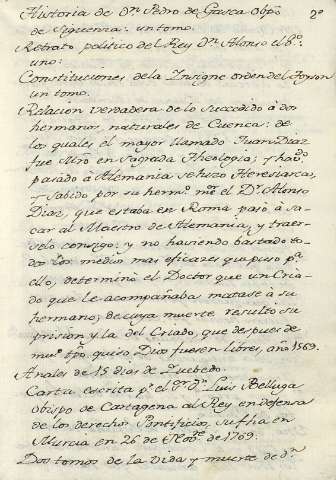 Historia de Dn. Pedro de Gasca Obpo. 2º
de Siguenza: un tomo.
Retrato politico del Rey Dn. Alonso el 8º.
uno:
Constituciones de la Insigne orden del Toyson
un tomo.
Relacion verdadera de lo succedido à dos
hermanos, naturales de Cuenca: de
los quales el mayor llamado Juan Diaz
fue Mro en Sagrada Theologia; y havdo.
pasado à Alemania se hizo Heresiarca,
y sabido por su hermo. el Dr. Alonso
Diaz, que estaba en Roma pasò à sa-
car al Maestro de Alemania, y traer-
selo consigo: y no haviendo bastado to-
dos los medios mas eficazes que puso pa.
ello, determinò el Doctor que un Cria-
do que le acompañaba matase à su
hermano; de cuya muerte resultò su
prision y la del Criado, que despues de
mu. tpo. quiso Dios fuesen libres, año 1569.
Anales de 15 dias de Quebedo.
Carta escrita pr. el Sr. Dn. Luis Belluga
obispo de Cartagena al Rey en defensa
de los derechos Pontificios, su fha en
Murcia en 26 de de 1709.
Dos tomos de la Vida y muerte de Dn.